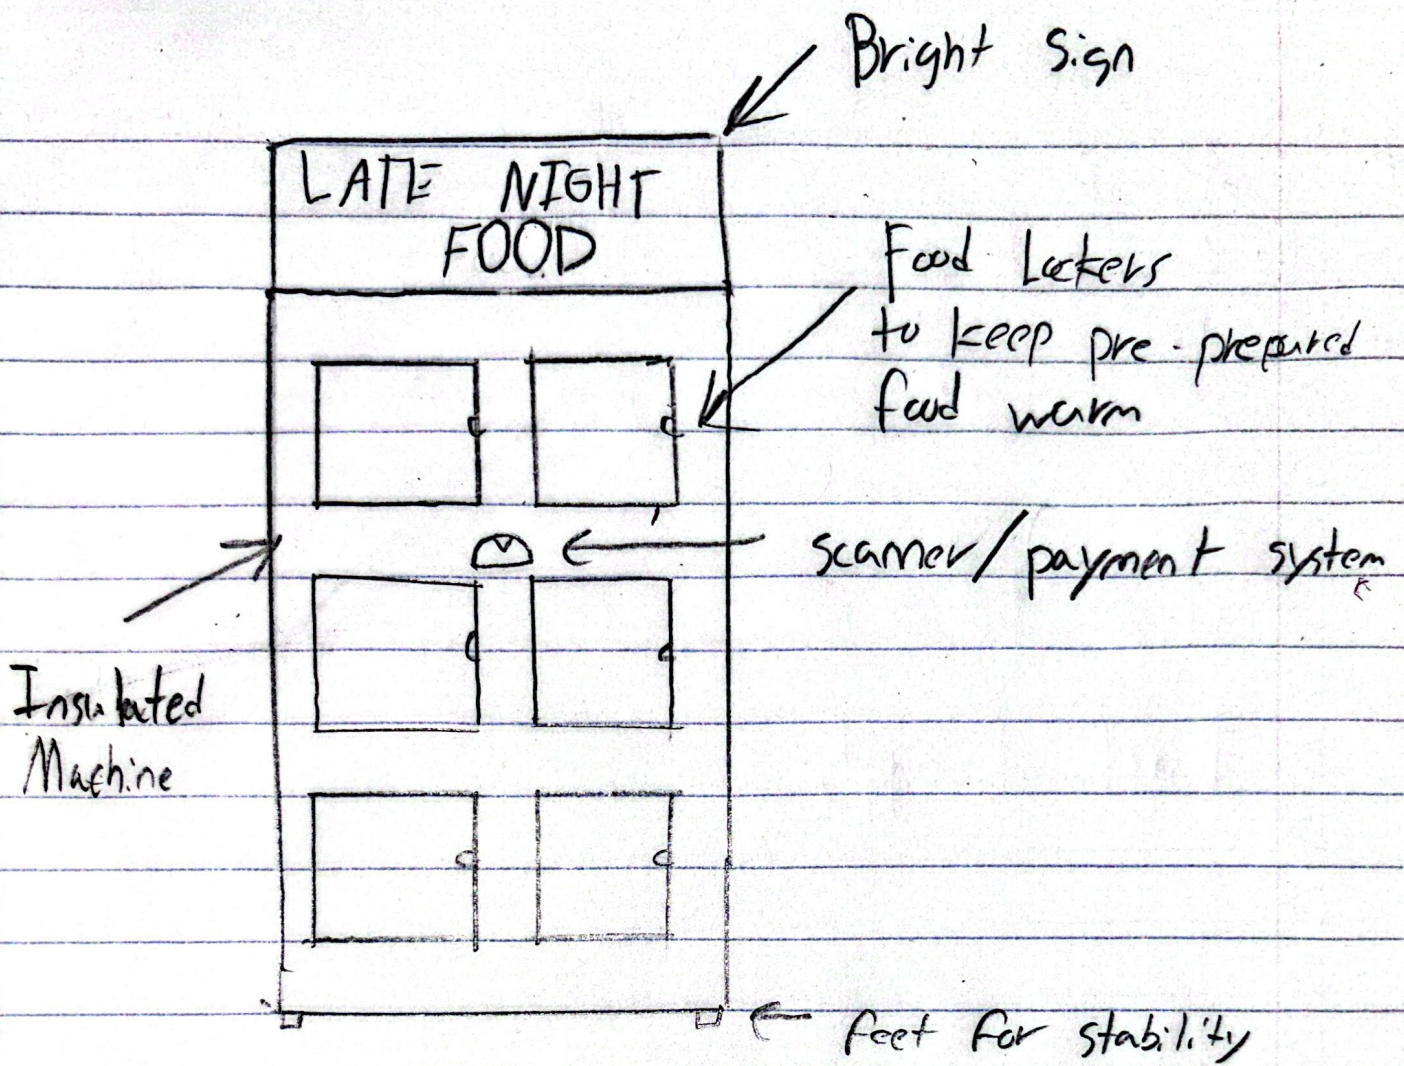 Bright Sign
LATE NIGHT
FOOD
Food Lockers
to keep pre-prepared
food warm
scanner/payment system
Insulated
Machine
feet for stability